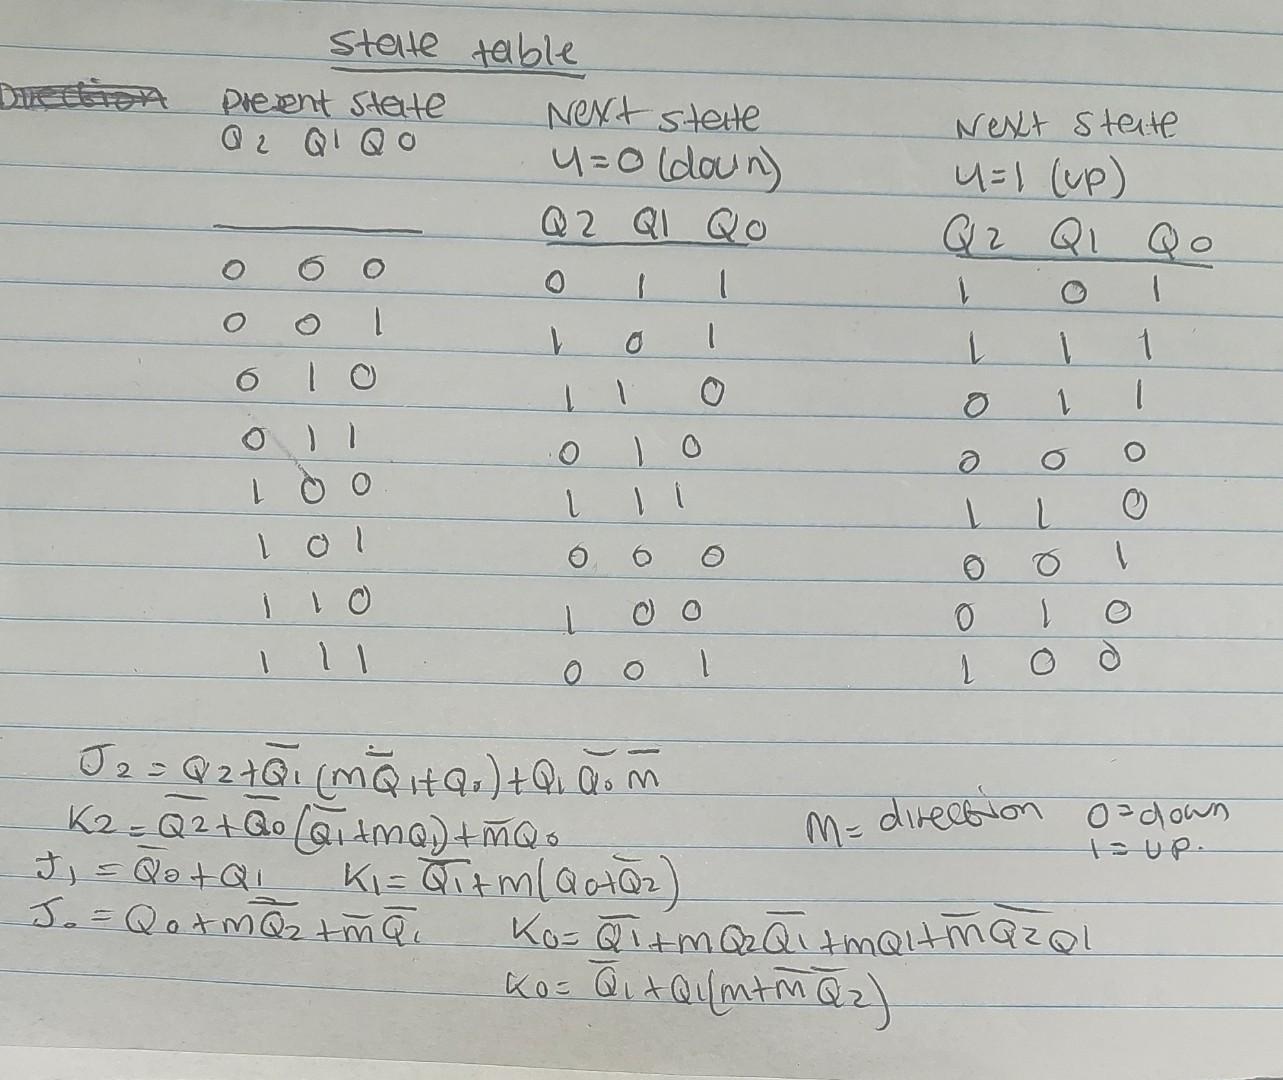 State table
Present State Next state Next state
Q2 Q1 Q0 U=0 (down) U=1 (up)
Q2 Q1 Q0 Q2 Q1 Q0
0 0 0 0 1 1 1 0 1
0 0 1 1 0 1 1 1 1
0 1 0 1 1 0 0 1 1
0 1 1 0 1 0 0 0 0
1 0 0 1 1 1 1 1 0
1 0 1 0 0 0 0 0 1
1 1 0 1 0 0 0 1 0
1 1 1 0 0 1 1 0 0
J2 = Q2+Q̅1(mQ̅1+Q0)+Q1Q̅0m̅
K2 = Q̅2+Q̅0(Q̅1+mQ1)+m̅Q0 M = direction 0=down
1=up.
J1 = Q̅0+Q1 K1 = Q̅1+m(Q0+Q̅2)
J0 = Q0+mQ̅2+m̅Q̅1 K0 = Q̅1+mQ2Q̅1+mQ1+m̅Q̅2Q1
K0 = Q̅1+Q1(m+m̅Q̅2)